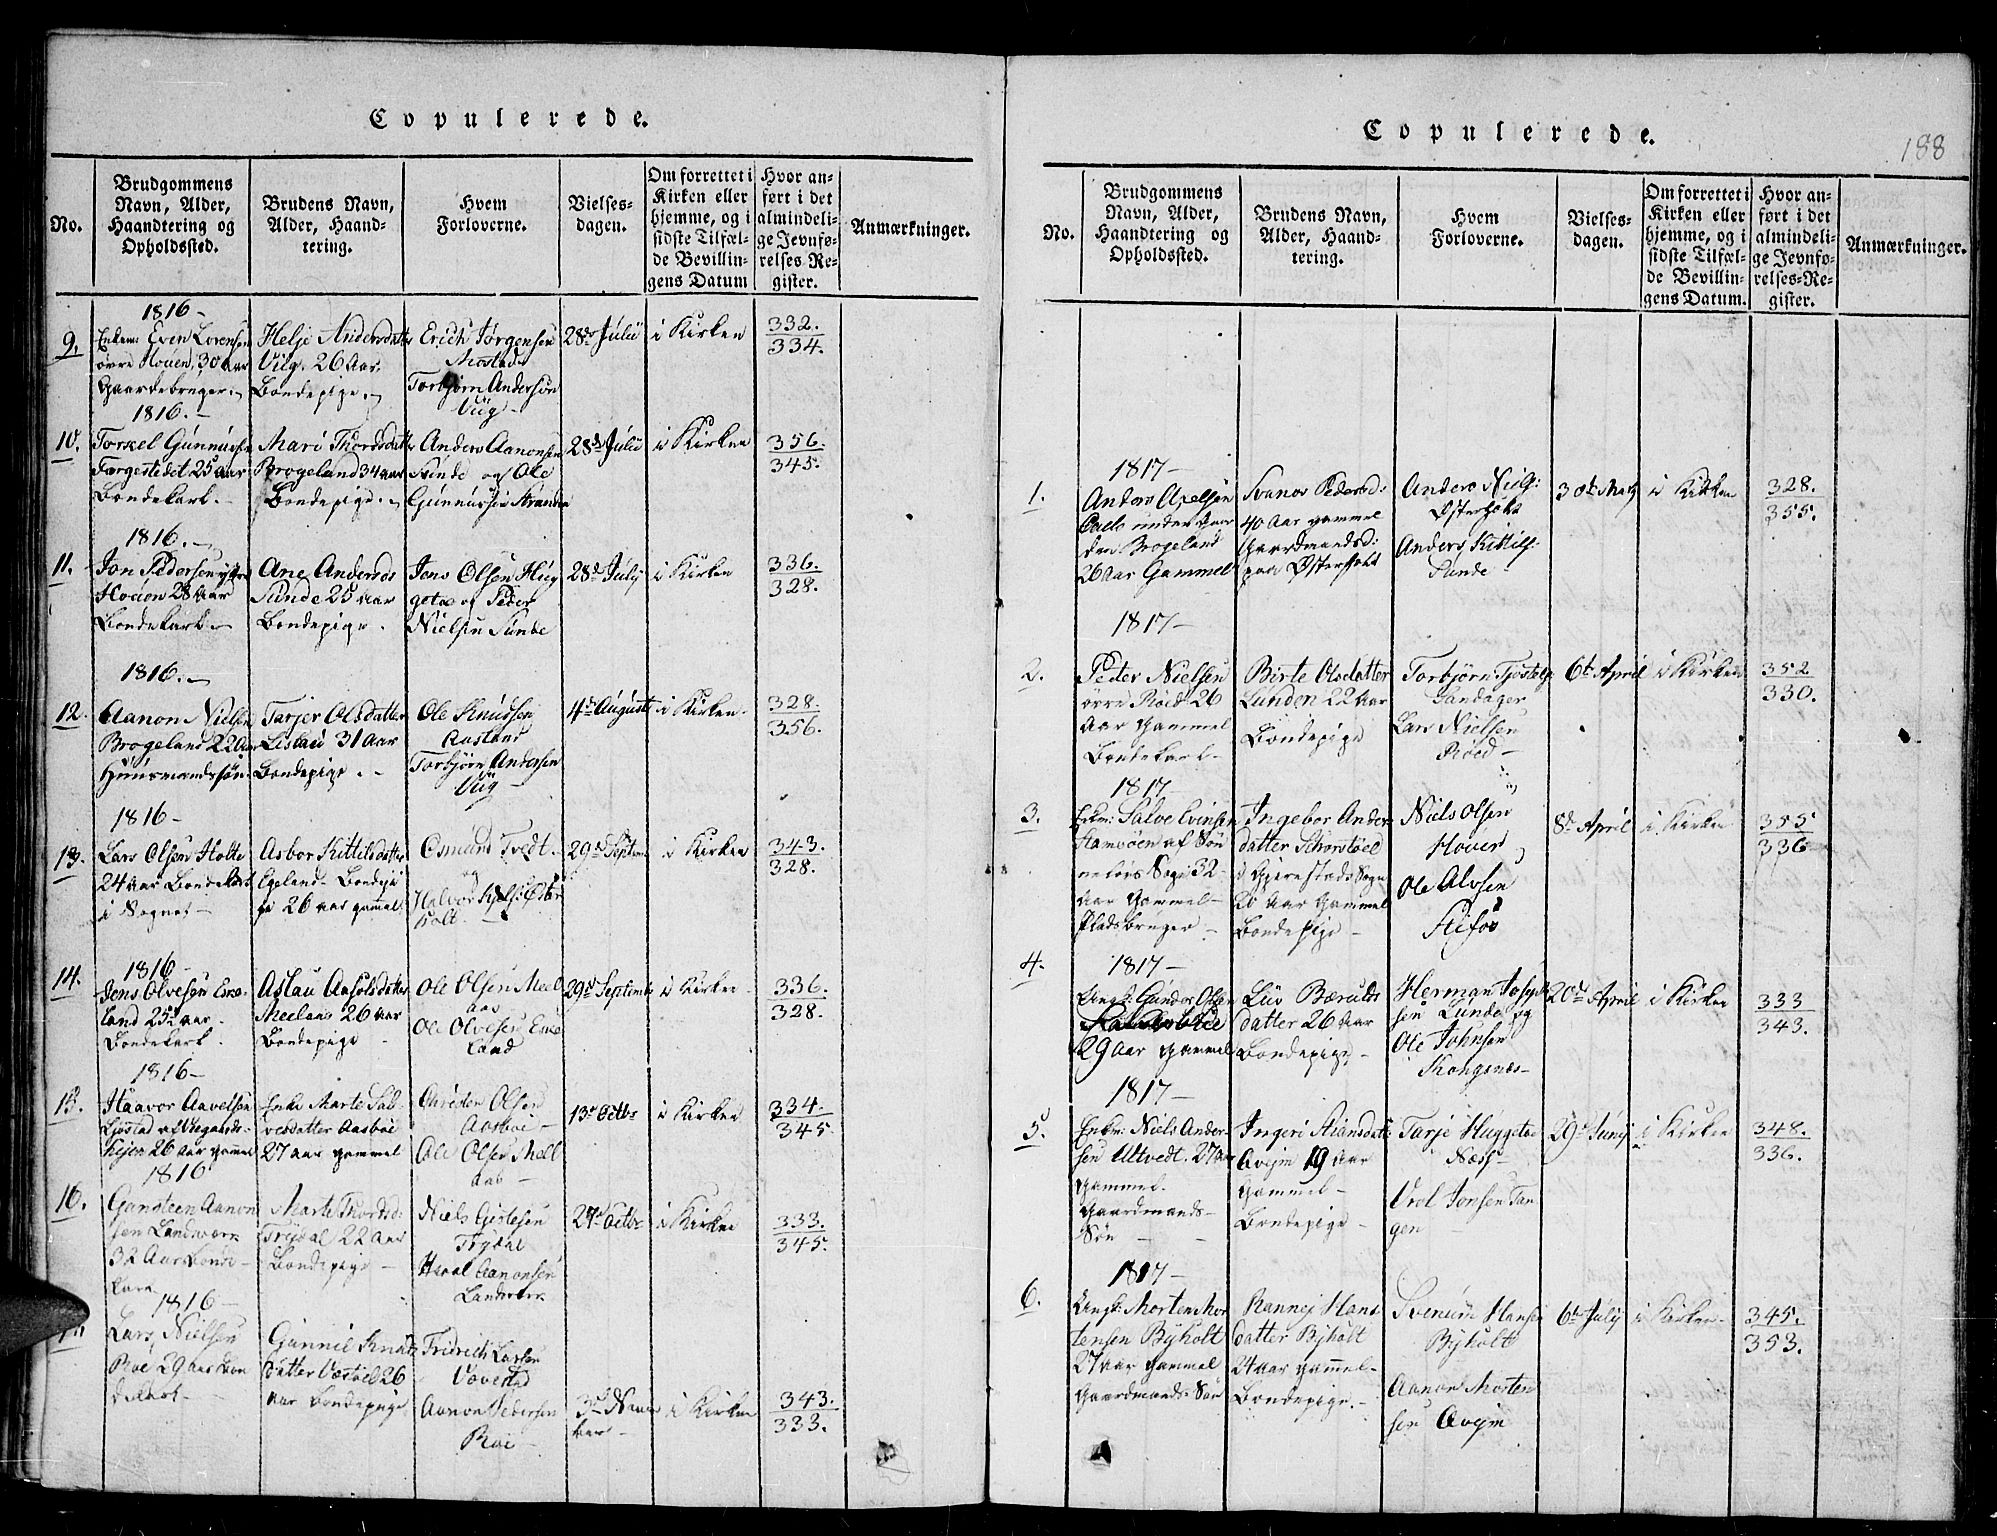 Copulerede.
No.
Brudgommens
Navn, Alder,
Haandtering og
Opholdssted.
Brudens Navn,
Alder, Haand-
tering.
Hvem
Forloverne.
Vielses-
dagen.
Om forrettet i
Kirken eller
hjemme, og i
sidste Tilfæl-
de Bevillin-
gens Datum
Hvor an-
ført i det
almindeli-
ge Jevnfø-
relses-Re-
gister.
Anmærkninger.
9.
1816-
Enkem: Even Lorensen
øvre Houen, 30 Aar
Gaardebruger.
Helje Andersdatter
Viig. 26 Aar.
Bondepige.
Erich Jørgensen
Mostad
Torbjørn Andersøn
Viig
28de Julii
i Kirken
332.
334.
10.
1816.-
Torkel Gunnusen
25 Aar
Bondekarl.
Mari Thordsdatter
Brogeland 34 aar
Bondepige.
Anders Aanonsen
Sunde og Ole
Gunnussen Stranden
28de Julii
i Kirken
356.
345.
11.
1816.
Jon Pedersen ytre
Houen 28 Aar
Bondekarl
Ane Andersds
Sunde 25 Aar
Bondepige.
Jens Olsen Hug
og Peder
Nielsen Sunde
28de July
i Kirken
336.
328.
12.
1816.
Aanon Nielsen
Brogeland 22 Aar
Huusmandssøn
Tarjer Olsdatter
Lislau 31 Aar
Bondepige.
Ole Knudsen
Aasland
Torbjørn Andersen
Viig
4de August
i Kirken.
328.
356.
13.
1816-
Lars Olsen Holte
24 aar Bondekarl
i Sognet-
Asbor Kittilsdatter
Egeland- Bondepi
ge 26 aar gammel
Osmund Tvedt.
og
Halvor Øster
holt-
29de Septem
i Kirken
343.
328.
14.
1816-
Jens Olvesen Eske-
land 25 aar.
Bondekarl.
Aslau Aasolsdatter
26 aar
Bondepige
Ole Olsen
Ole Olvesen Eske
land
29de Septembr
i Kirken.
336.
328.
15.
1816-
Haavor Aavelsen
Lystad af Vegaards-
heien 26 aar gammel
Enke Marte Sal-
vesdatter Aasboe
27 aar gammel
Christen Olsen
Aasboe-
Ole Olsen
13de Octbr
i Kirken
334.
345
16.
1816
Gunsteen Aanon
sen Landverk
32 Aar Bonde-
karl
Marte Thordsd
Trydal 22 aar
Bondepige-
Niels Gistesen
Trydal
Aanonsen
Landverk
27de Octbr
i Kirken
333.
345.
17.
1816-
Lars Nielsen
Roe, 29 aar Bon
dekarl-
Gunnil Knuds
datter Væstøl 26
aar bondepige
Fridrich Larsen
Vovestad
Aanon Pedersen
Roe-
3de Novem
ber-
i Kirken
343.
333.
Copulerede.
188
No.
Brudgommens
Navn, Alder,
Haandtering og
Opholdssted.
Brudens Navn,
Alder, Haand-
tering.
Hvem
Forloverne.
Vielses-
dagen.
Om forrettet i
Kirken eller
hjemme, og i
sidste Tilfæl-
de Bevillin-
gens Datum.
Hvor an-
ført i det
almindeli-
ge Jevnfø-
relses-Re-
gister.
Anmærkninger.
1.
1817-
Anders Axelsen
under
Brogeland
26 Aar Gammel
Svanov Pedersd:
40 Aar gammel
Gaardmandsd:
paa Østerholt
Anders Niels:
Østerholt
Anders Kittils:
Sunde
30te Marts
i Kirken
328.
355.
2.
1817-
Peder Nielsen
øvre Røed 26
aar gammel
Bondekarl-
Birte Olsdatter
Lunden 22 Aar
Bondepige
Torbjørn Tjostels
Sandager
Lars Nielsen
Røed-
6te April
i Kirken
352
330.
3.
1817
Enkm: Salve Evinsen
Hamsøen af Søn
deløvs Sogn 32-
aar gammel-
Pladsbruger-
Ingebor Anders
datter Schorstøel
i Gjerrestads Sogn
26 Aar gammel
Bondepige-
Niels Olsen
Hover
Ole Alvsen
Stifos
8de April
i Kirken
355
336
4.
1817-
Ungk: Gunder Olsen
29 aar gammel
Liv Bærulds
datter 26 Aar
Bondepige-
Herman Joseph
sen Lunde og
Ole Johnsen
Kongsnes-
20de April
i Kirken
333
343.
5.
1817-
Enkm: Niels Ander-
sen Ultvedt. 27 aar
gammel.
Gaardmands-
Søn
Ingeri Stiansdatt
Avejm 19 aar
Gammel-
Bondepige-
Tarje
Næss-
Vrol Jonsen Tan
gen-
29de Junij
i Kirken
348.
336.
6.
1817-
Ungk: Morten Mor
tensen Byholt
27 aar gammel
Gaardmands Søn
Rannej Hans
datter Byholt
24 aar gammel-
Bondepige.-
Svenum Hansen
Byholt
Aanon Morten
sen Avejm
6te July
i Kirken-
345.
353.